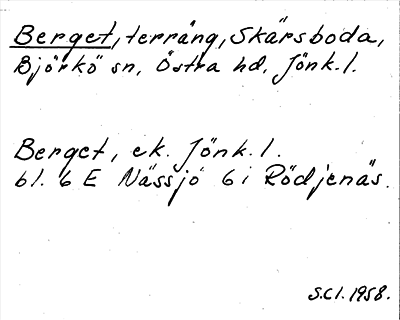 Berget, terräng, Skärsboda,
Björkö sn, Östra hd, Jönk. l.
Berget, ek. Jönk. l.
bl. 6 E Nässjö 6 i Rödjenäs.
S.C.l. 1958.